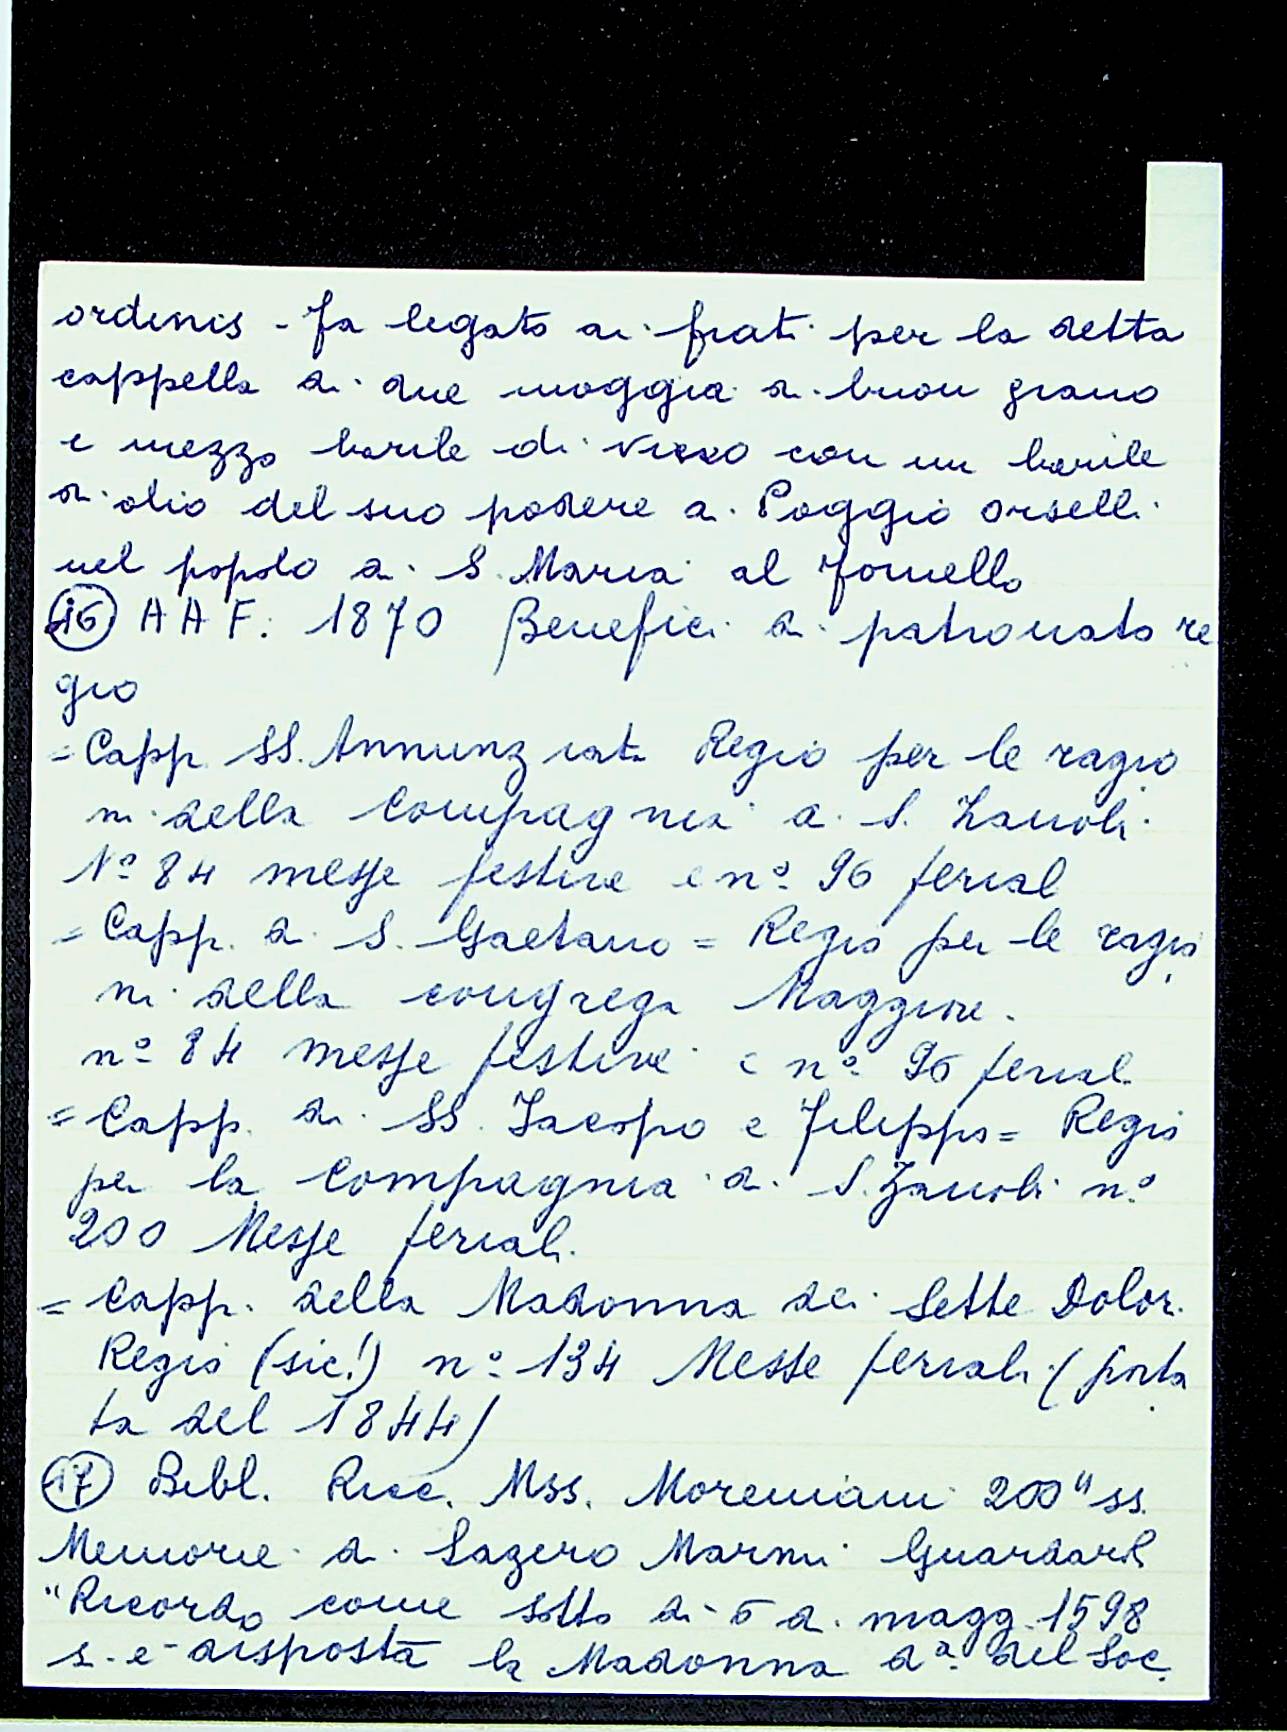 ordinis - fa legato ai frati per la detta
cappella di due moggia di buon grano
e mezzo barile di vino con un barile
di olio del suo podere di Poggio Orselli
nel popolo di S. Maria al Fornello
(16) A A F. 1870 Benefici di patronato re
gio
= Capp. SS. Annunziata Regio per le ragio
ni della Compagnia di S. Zanobi
N° 84 messe festive e n° 96 feriali
= Capp. di S. Gaetano = Regio per le ragio
ni della congrega Maggiore.
n° 84 messe festive e n° 96 feriali
= Capp. di SS. Jacopo e Filippo = Regio
per la Compagnia di S. Zanobi n°
200 Messe feriali.
= Capp. della Madonna dei Sette Dolori
Regio (sic!) n° 134 Messe feriali (porta
ta del 1844)
(17) Bibl. Ricc. Mss. Moreniani 200" ss.
Memorie di Lazero Marmi Guardar
"Ricordo come sotto di 5 di magg. 1598
si è disposta la Madonna d.ª del Soc.